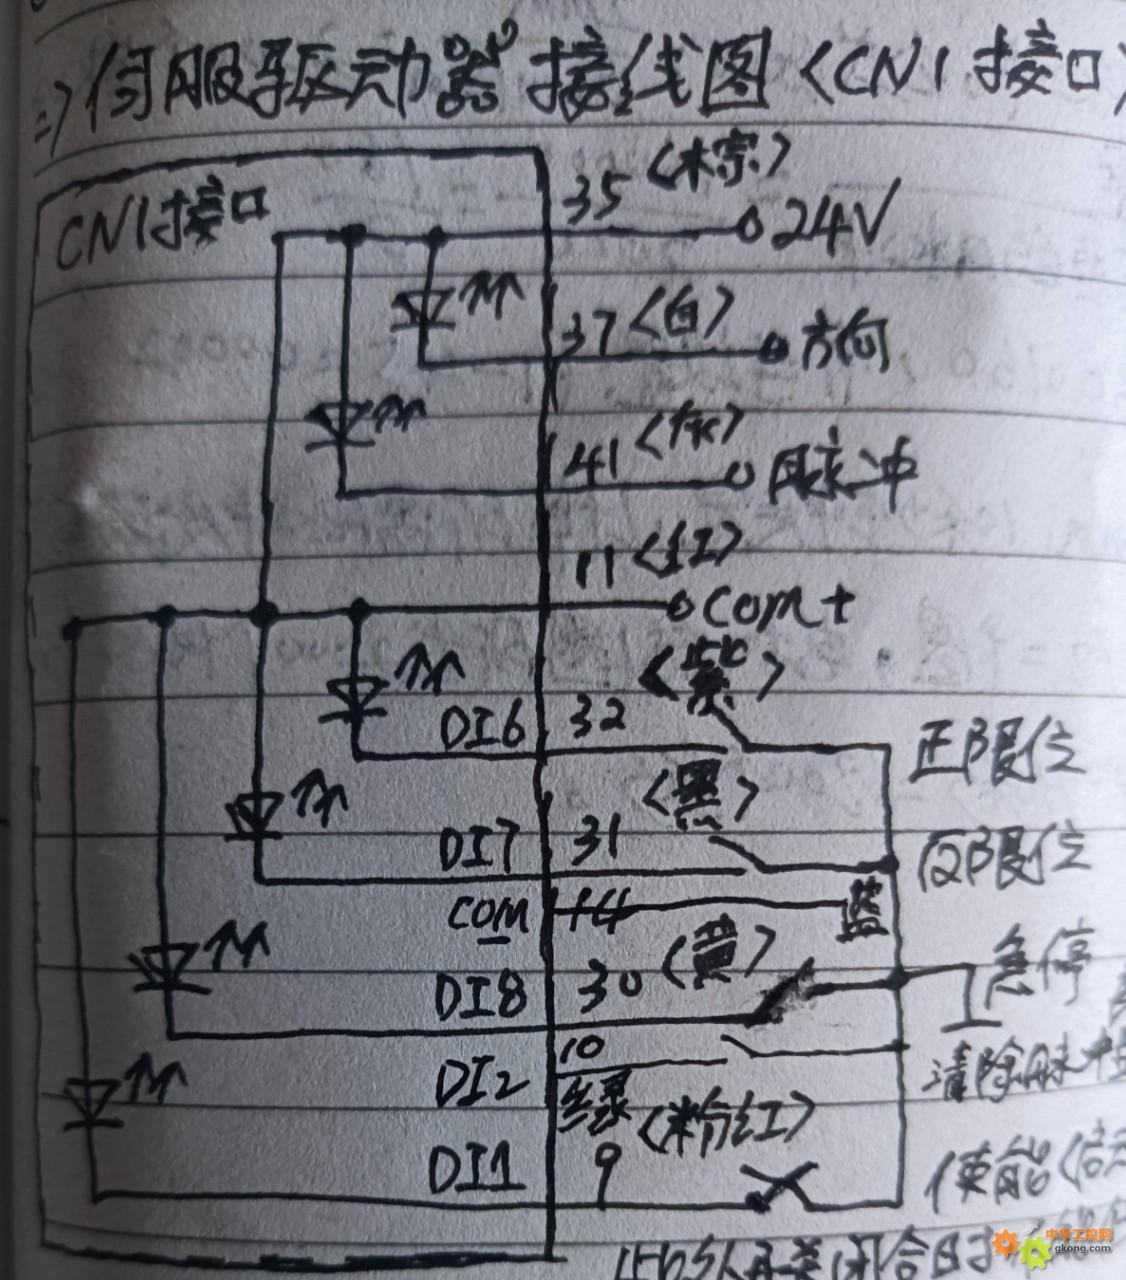 => 伺服驱动器接线图 <CN1接口>
CN1接口
35 <棕>
24V
37 <白>
方向
41 <灰>
脉冲
11 <红>
COM+
<紫>
DI6 32
正限位
<黑>
DI7 31
反限位
COM- 14 蓝
DI8 30 <黄>
急停
DI2 10
绿
清除脉冲
<粉红>
DI1 9
使能
中华工控网
gkong.com